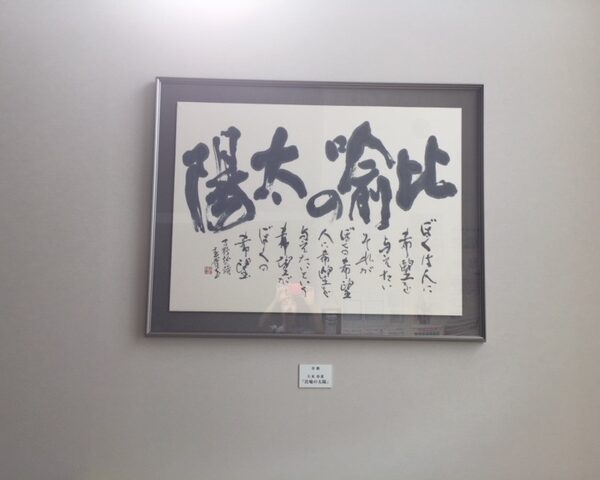 比喩の太陽
ぼくは人に
希望を
与えたい
それが
ぼくの希望
人に希望を
与えたいという
希望が
ぼくの
希望
「比喩の太陽」